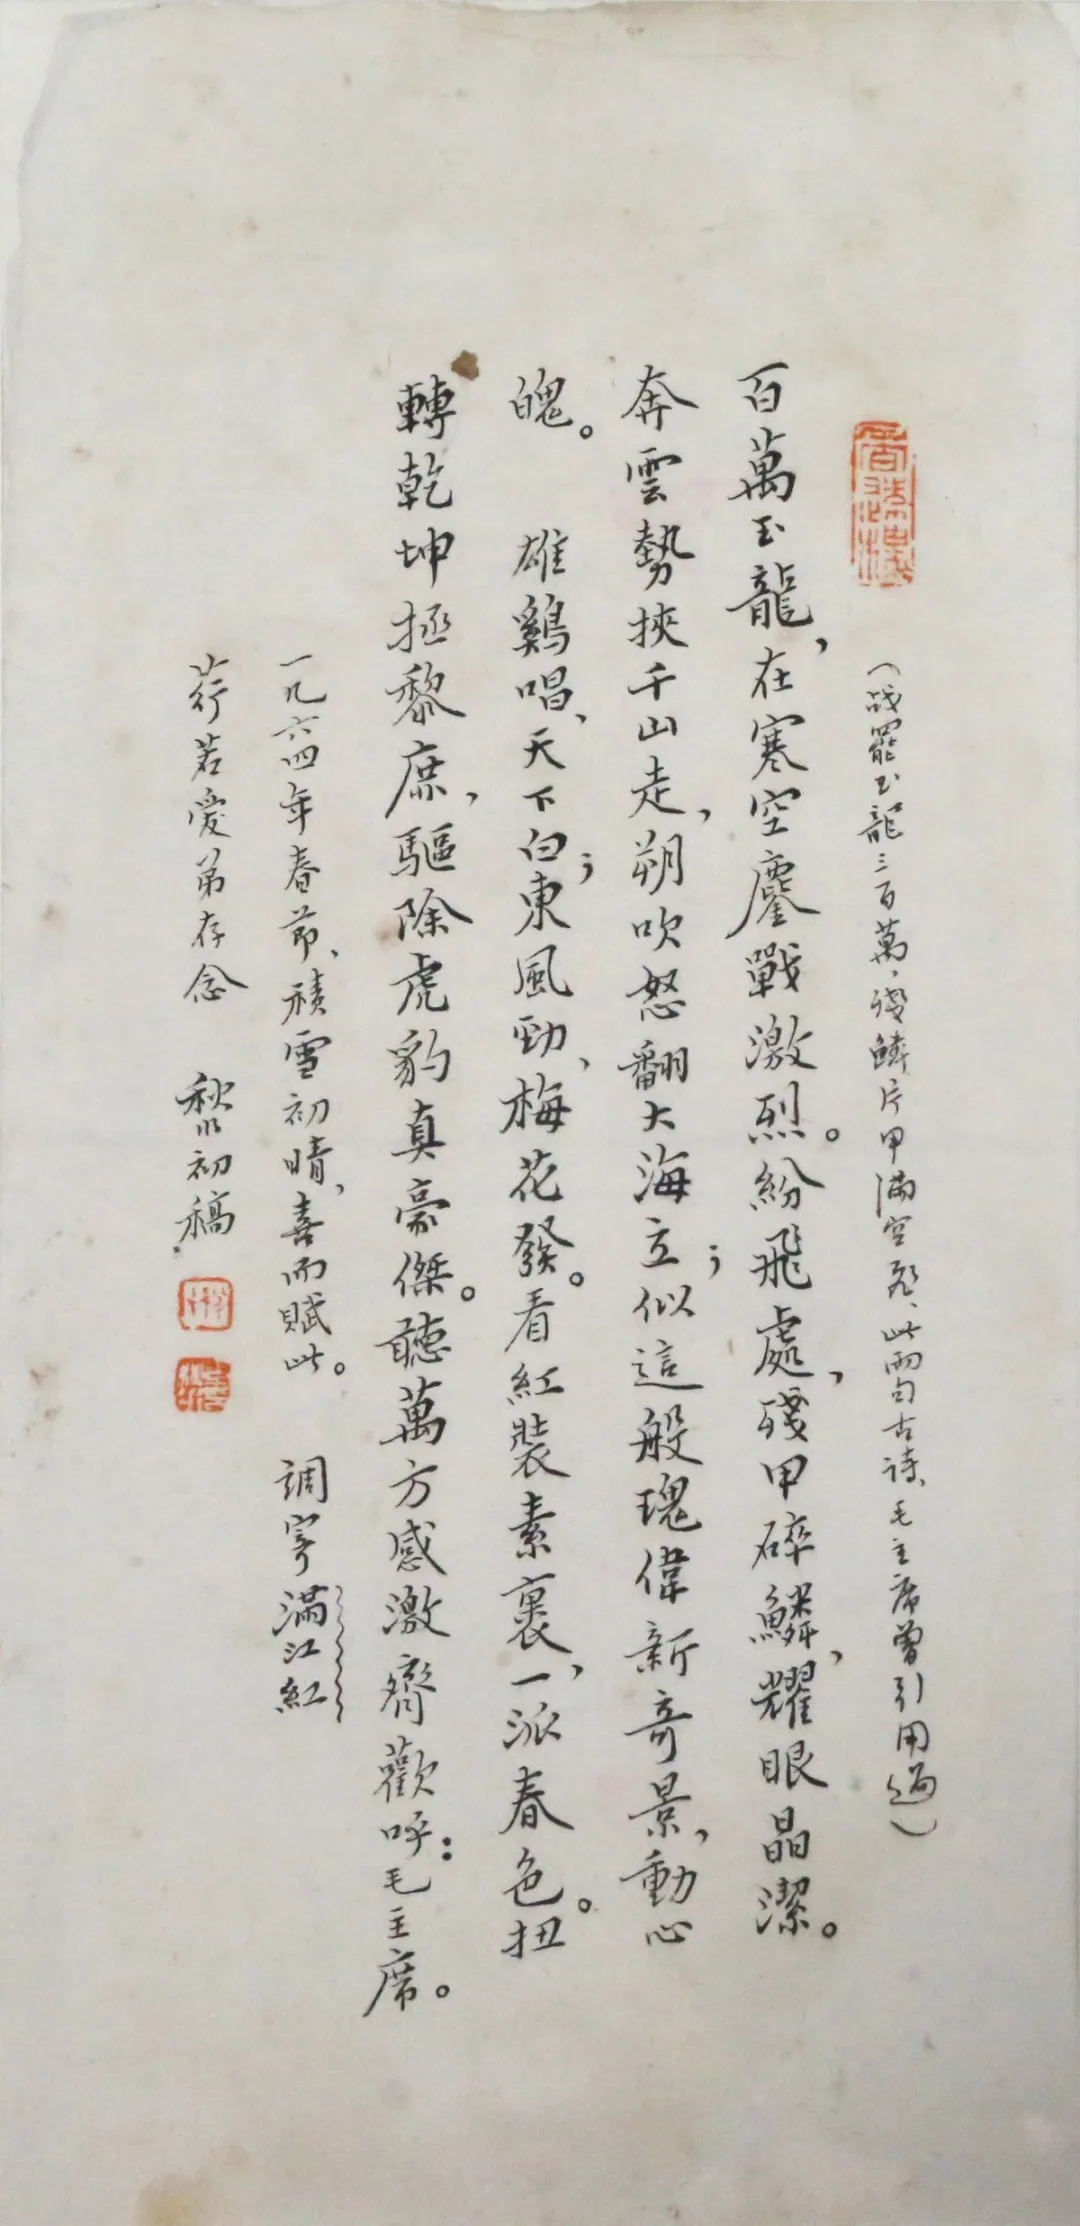 （战罷玉龍三百萬、殘鱗片甲滿空飛、此兩句古詩、毛主席曾引用過）
百萬玉龍，在寒空鏖戰激烈。紛飛處，殘甲碎鱗，耀眼晶潔。
奔雲勢挾千山走，朔吹怒翻大海立；似這般瑰偉新奇景，動心
魄。 雄鷄唱，天下白；東風勁、梅花發。看紅裝素裹，一派春色。扭
轉乾坤拯黎庶，驅除虎豹真豪傑。聽萬方感激齊歡呼：毛主席。
一九六四年春節、積雪初晴，喜而賦此。 調寄滿江紅
荇若愛弟存念 初稿